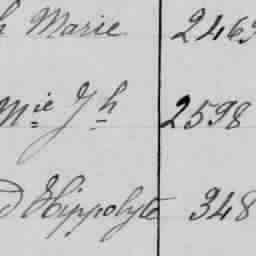 h Marie 2469
Mie Jh 2598
d Hippolyte 348